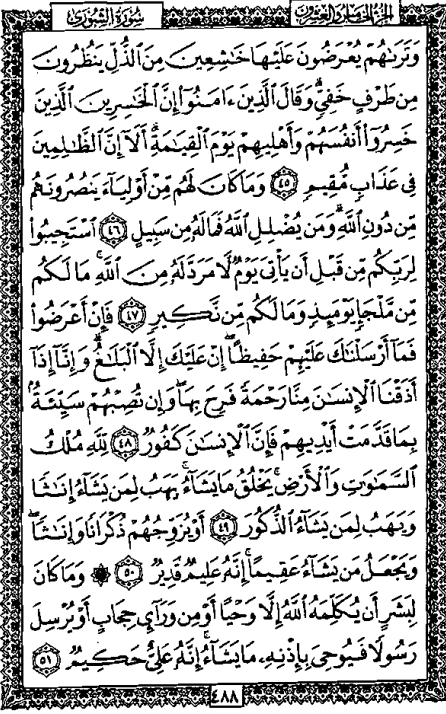 الجزء الخامس والعشرون
سورة الشورى
وَتَرَىٰهُمْ يُعْرَضُونَ عَلَيْهَا خَـٰشِعِينَ مِنَ ٱلذُّلِّ يَنظُرُونَ
مِن طَرْفٍ خَفِىٍّ ۗ وَقَالَ ٱلَّذِينَ ءَامَنُوٓا۟ إِنَّ ٱلْخَـٰسِرِينَ ٱلَّذِينَ
خَسِرُوٓا۟ أَنفُسَهُمْ وَأَهْلِيهِمْ يَوْمَ ٱلْقِيَـٰمَةِ ۗ أَلَآ إِنَّ ٱلظَّـٰلِمِينَ
فِى عَذَابٍ مُّقِيمٍ ٤٥ وَمَا كَانَ لَهُم مِّنْ أَوْلِيَآءَ يَنصُرُونَهُم
مِّن دُونِ ٱللَّهِ ۗ وَمَن يُضْلِلِ ٱللَّهُ فَمَا لَهُۥ مِن سَبِيلٍ ٤٦ ٱسْتَجِيبُوا۟
لِرَبِّكُم مِّن قَبْلِ أَن يَأْتِىَ يَوْمٌ لَّا مَرَدَّ لَهُۥ مِنَ ٱللَّهِ ۚ مَا لَكُم
مِّن مَّلْجَإٍ يَوْمَئِذٍ وَمَا لَكُم مِّن نَّكِيرٍ ٤٧ فَإِنْ أَعْرَضُوا۟
فَمَآ أَرْسَلْنَـٰكَ عَلَيْهِمْ حَفِيظًا ۖ إِنْ عَلَيْكَ إِلَّا ٱلْبَلَـٰغُ ۗ وَإِنَّآ إِذَآ
أَذَقْنَا ٱلْإِنسَـٰنَ مِنَّا رَحْمَةً فَرِحَ بِهَا ۖ وَإِن تُصِبْهُمْ سَيِّئَةٌۢ
بِمَا قَدَّمَتْ أَيْدِيهِمْ فَإِنَّ ٱلْإِنسَـٰنَ كَفُورٌ ٤٨ لِّلَّهِ مُلْكُ
ٱلسَّمَـٰوَٰتِ وَٱلْأَرْضِ ۚ يَخْلُقُ مَا يَشَآءُ ۚ يَهَبُ لِمَن يَشَآءُ إِنَـٰثًا
وَيَهَبُ لِمَن يَشَآءُ ٱلذُّكُورَ ٤٩ أَوْ يُزَوِّجُهُمْ ذُكْرَانًا وَإِنَـٰثًا ۖ
وَيَجْعَلُ مَن يَشَآءُ عَقِيمًا ۚ إِنَّهُۥ عَلِيمٌ قَدِيرٌ ٥٠ ۞ وَمَا كَانَ
لِبَشَرٍ أَن يُكَلِّمَهُ ٱللَّهُ إِلَّا وَحْيًا أَوْ مِن وَرَآئِ حِجَابٍ أَوْ يُرْسِلَ
رَسُولًا فَيُوحِىَ بِإِذْنِهِۦ مَا يَشَآءُ ۚ إِنَّهُۥ عَلِىٌّ حَكِيمٌ ٥١
٤٨٨